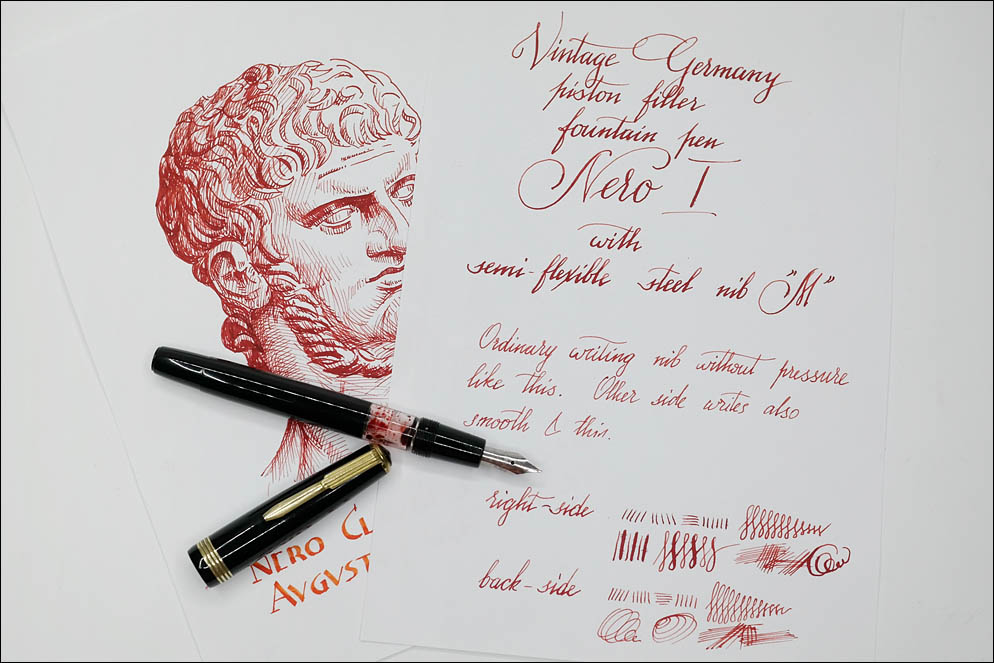 Vintage Germany
piston filler
fountain pen
Nero I
with
semi-flexible steel nib "M"
Ordinary writing nib without pressure
like this. Other side writes also
smooth & thin.
right-side
back-side
NERO CL
AVGVST